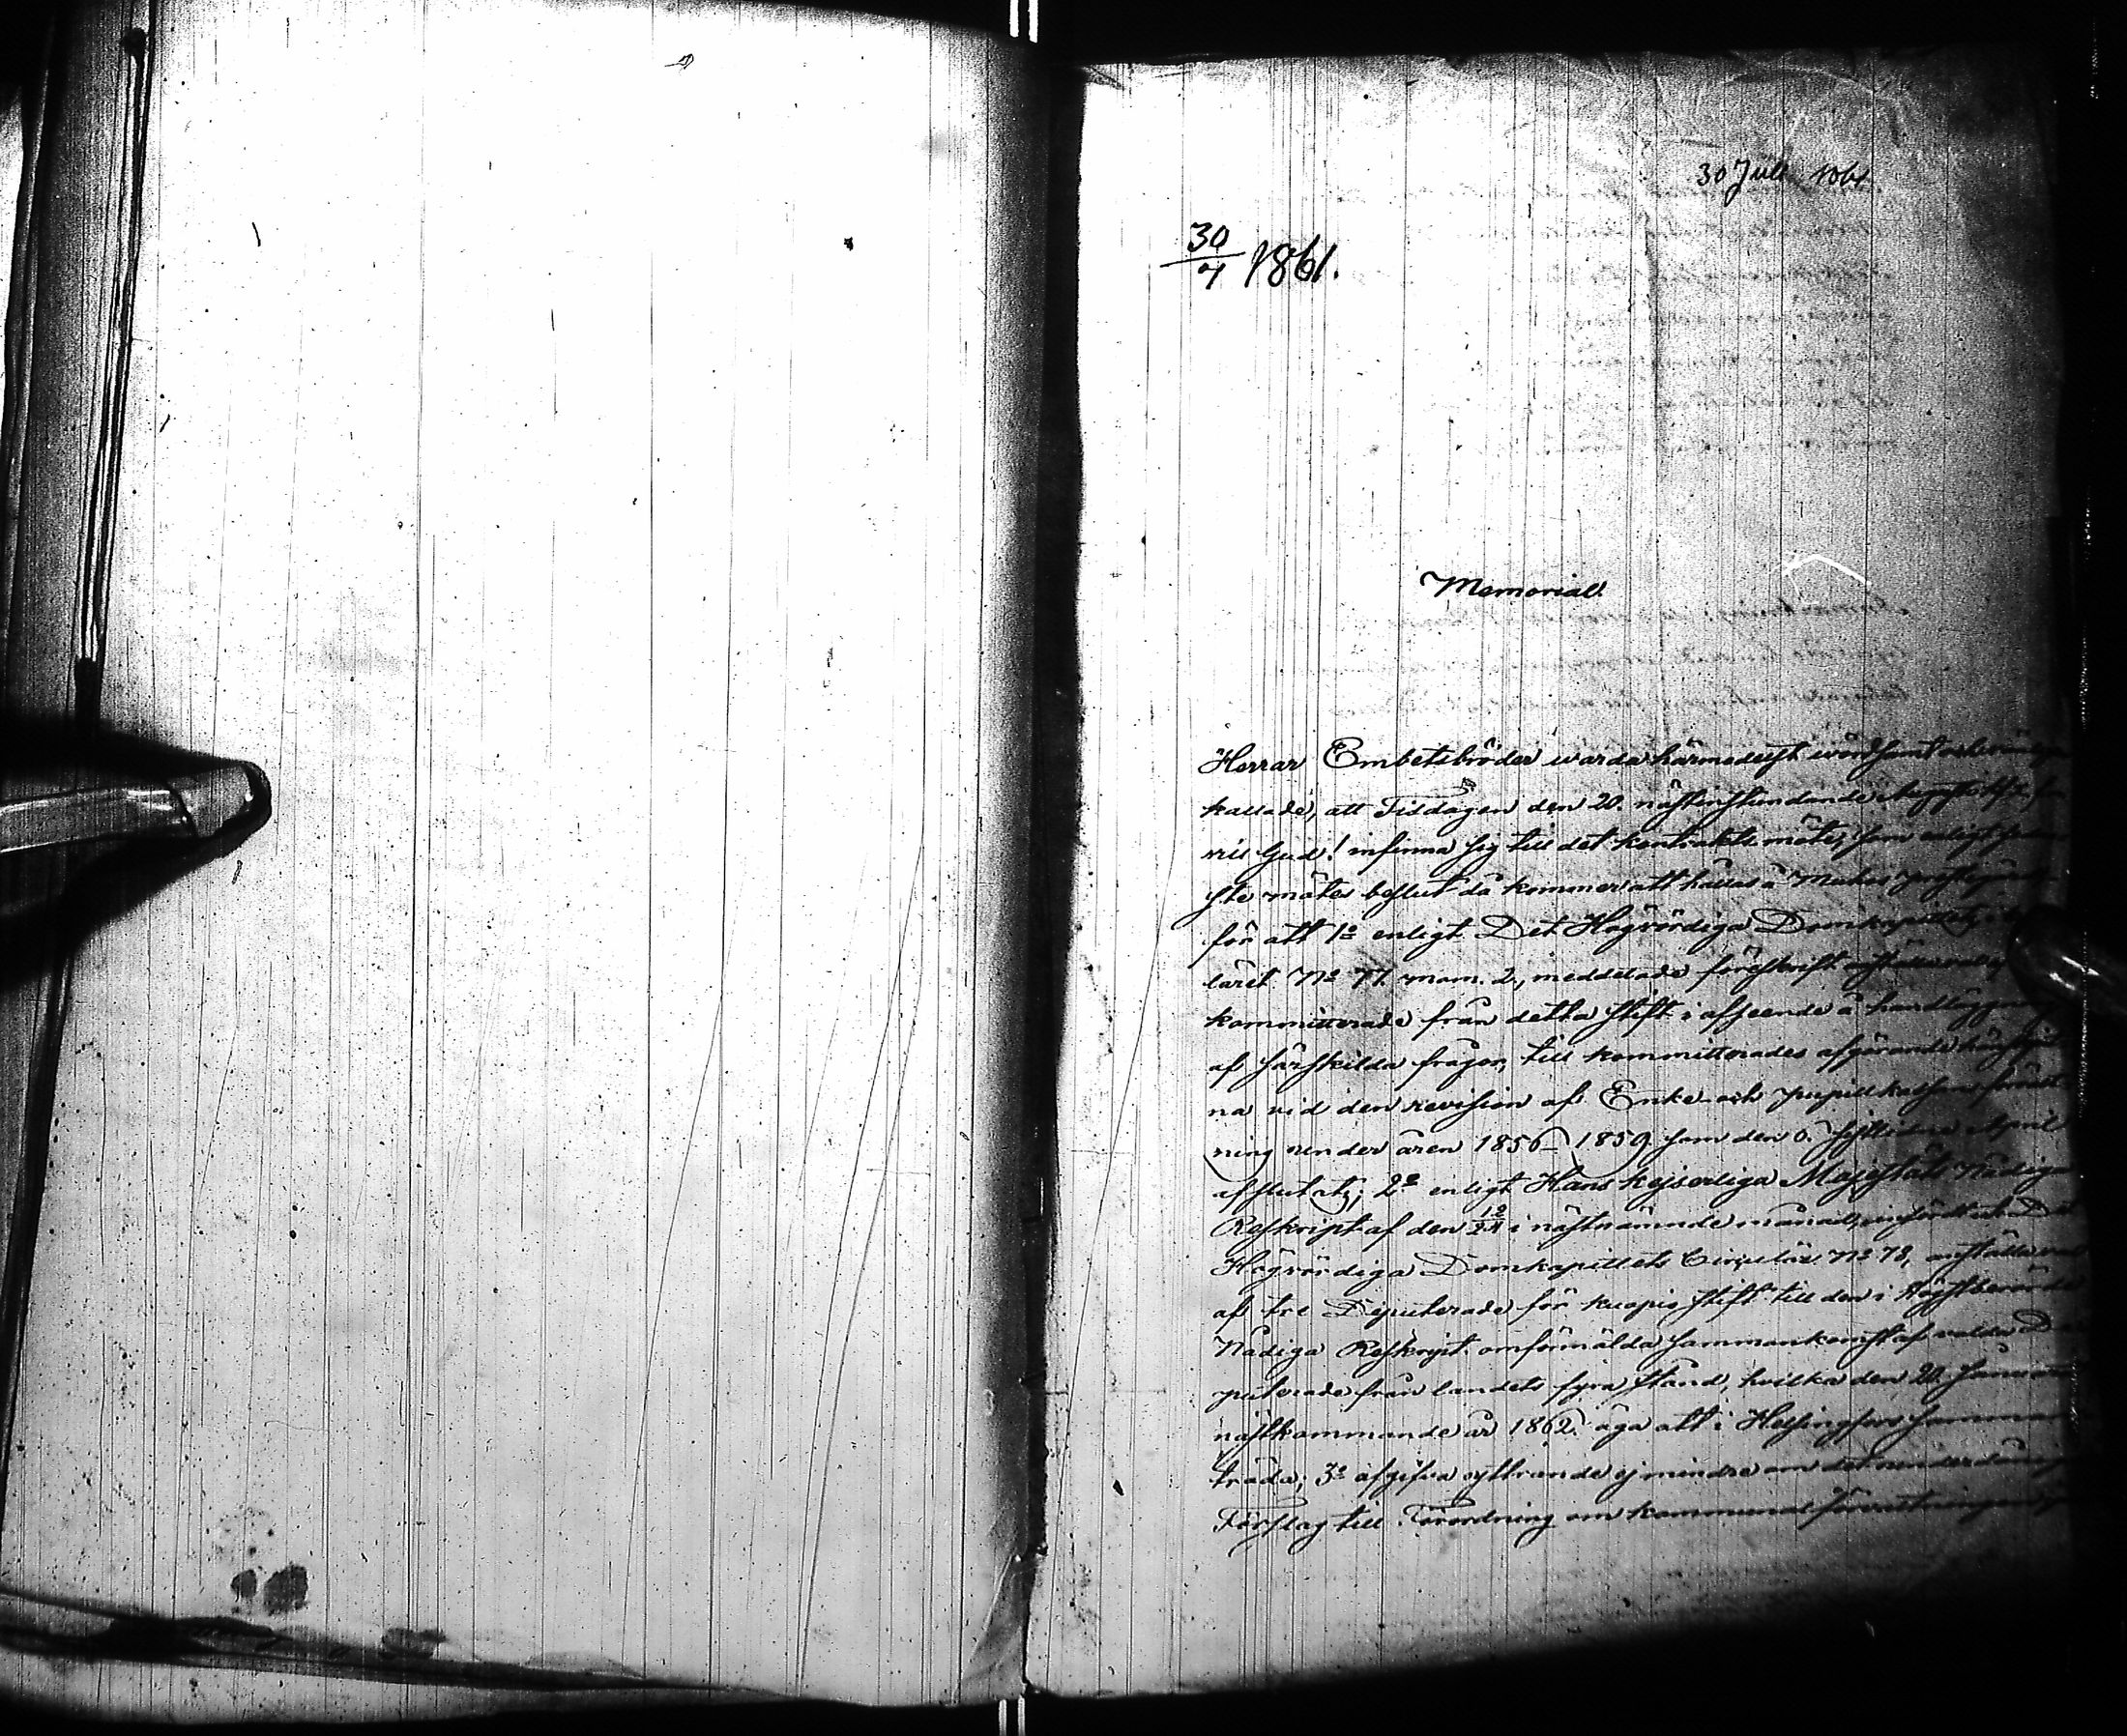 30 Juli 1861
30/7 1861.
Memorial.
Herrar Embetsbröder warda härmedelst wördsamt och
kallade, att Tisdagen den 20. nästinstundande Augusti
vill Gud! infinna sig till det kontraktsmöte, som enligt
ste mötes beslut då kommer att hållas å Muhos prestgård
för att 1o enligt Det Högvördiga Domkapitlets
läret No 77. mom. 2, meddelade föreskrift anställa val
kommitterade från detta stift i afseende å handläggning
af särskilda frågor, till kommitterades afgörande
na vid den revision af Enke- och pupillkassans förvalt-
ning under åren 1856–1859. som den 6. sistlidne April
afslutats; 2o enligt Hans Kejserliga Majestäts Nådiga
Reskript af den 12/24 i nästnämnde månad, infördt uti Det
Högvördiga Domkapitlets Cirkulär No 78, anställa val
af tre Deputerade för Kuopio stift till den i Högstberörde
Nådiga Reskript omförmälda sammankomst af valda De-
puterade från landets fyra stånd, hvilka den 20. Januari
nästkommande år 1862. äga att i Helsingfors samman-
träda; 3o afgifva yttrande ej mindre om det underdåniga
Förslag till Förordning om kommunalförvaltningen